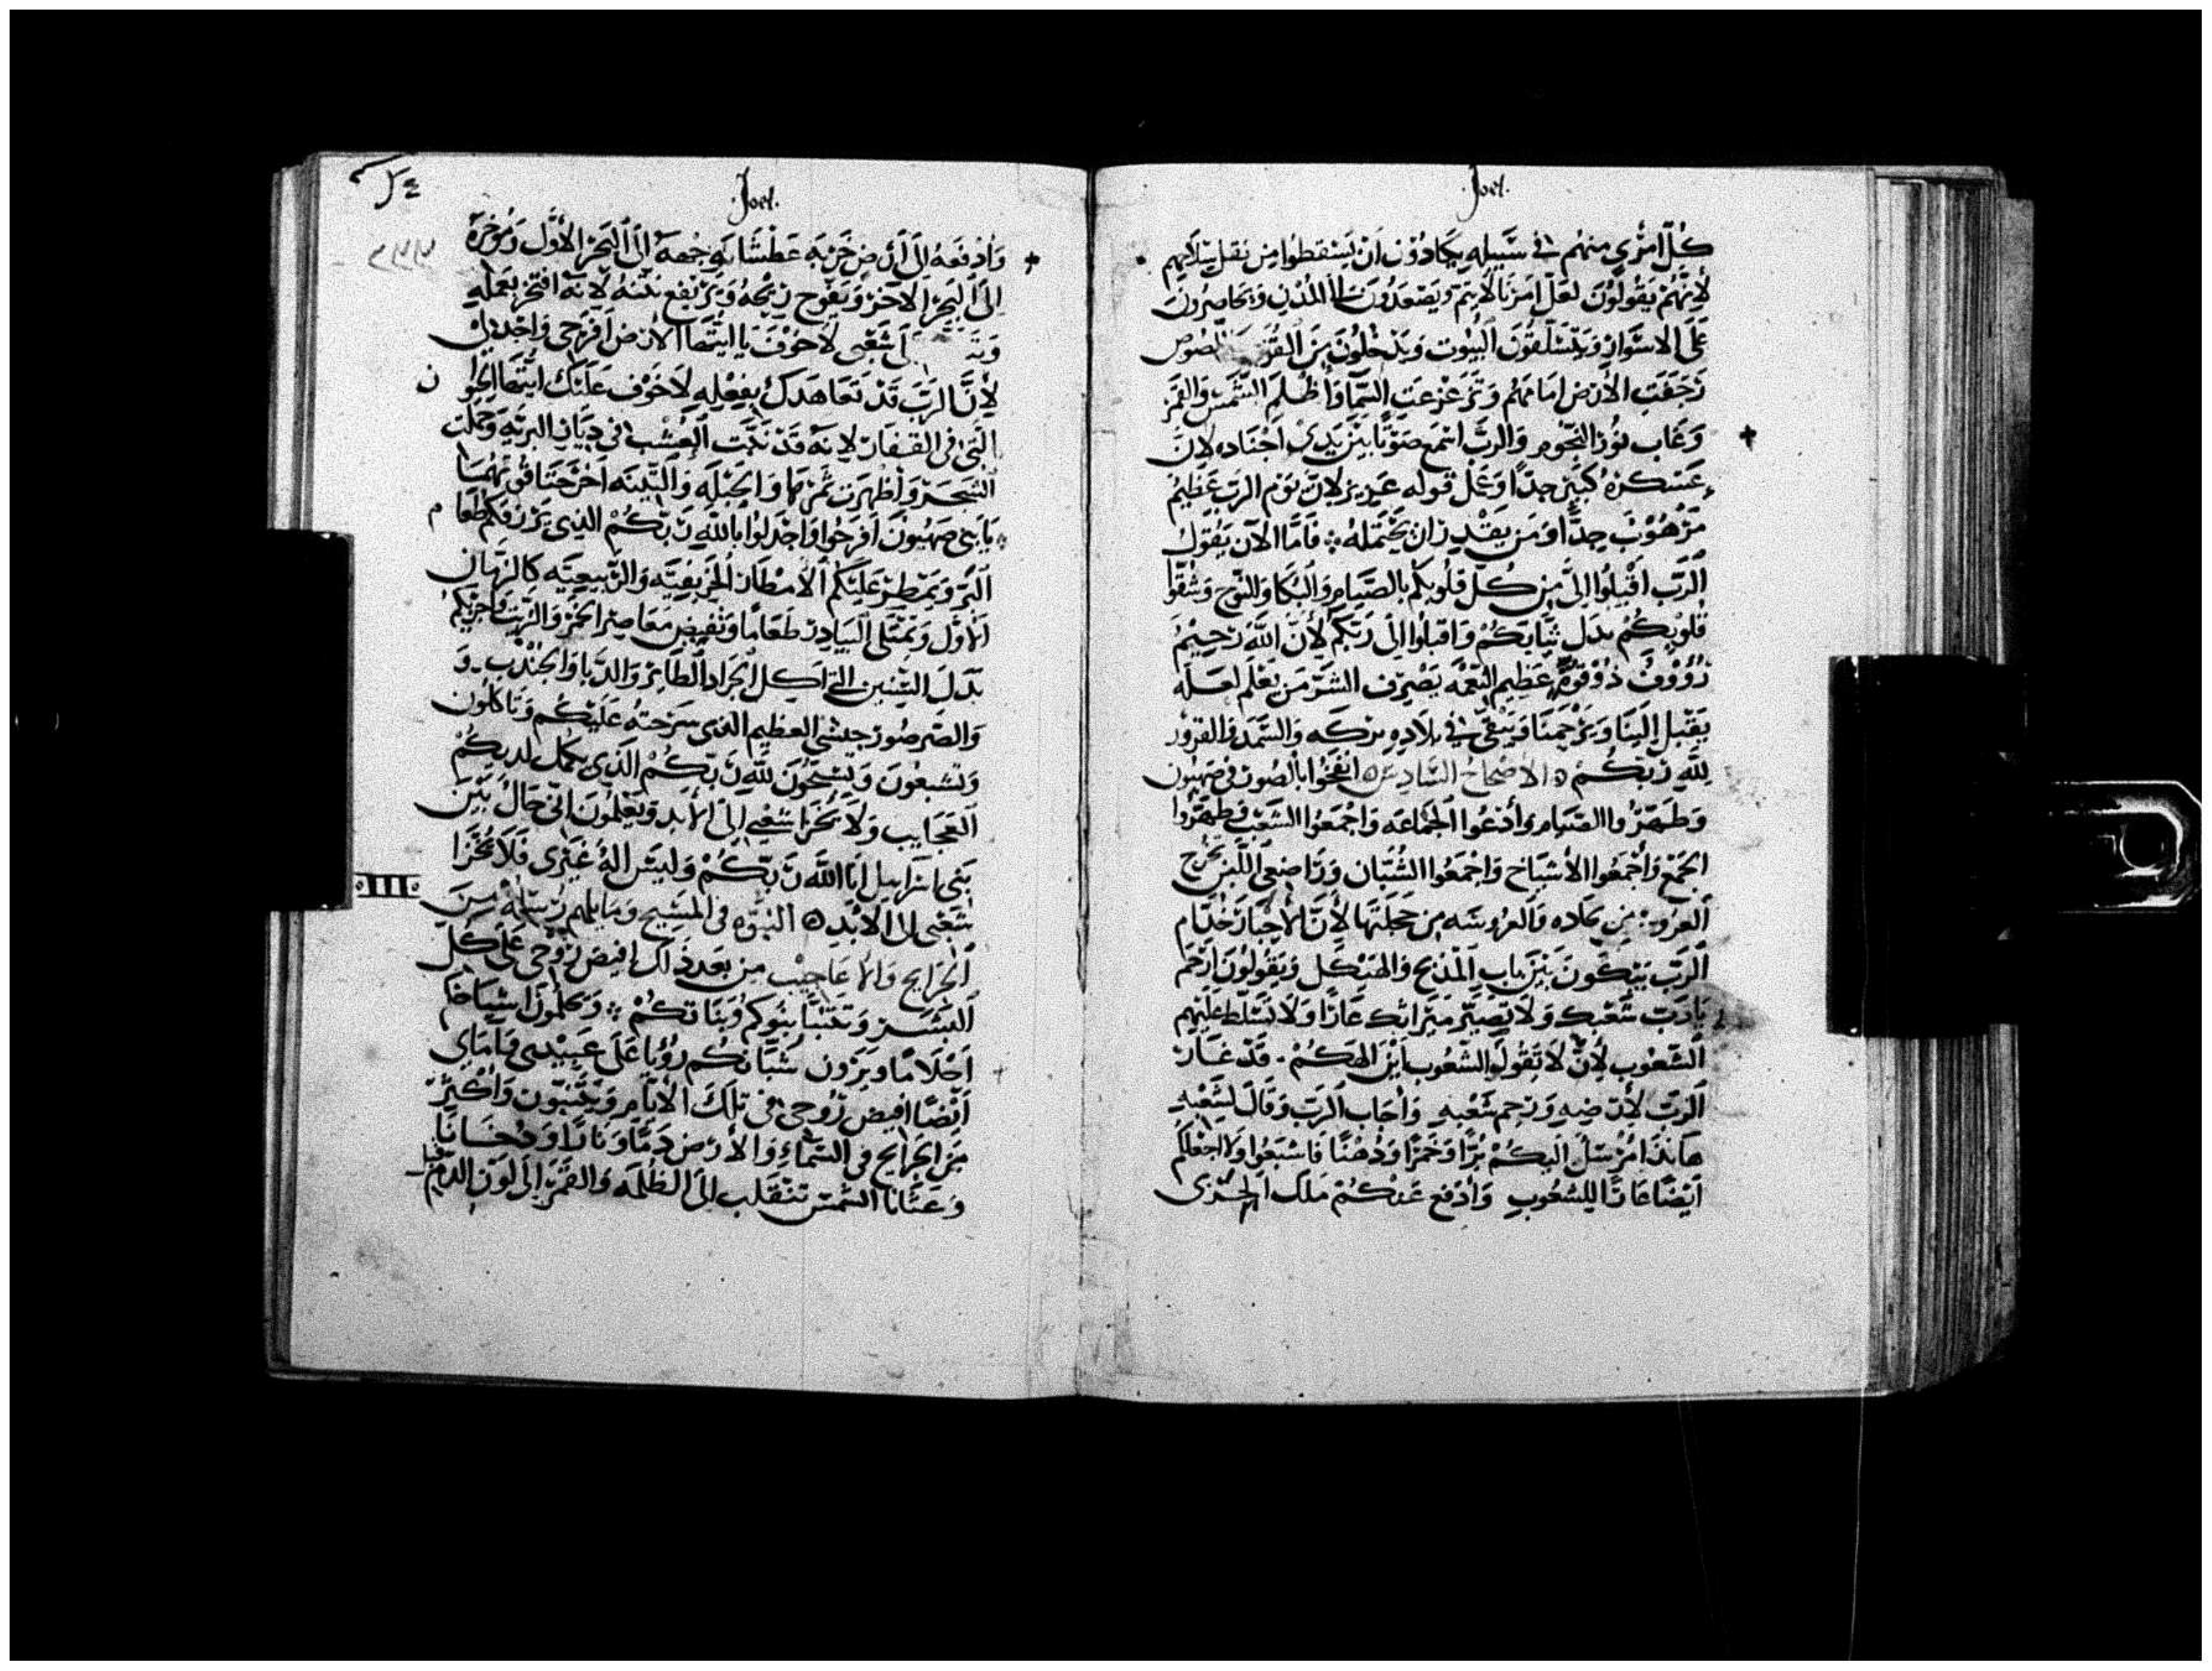 Joel.
كُلّ امْرُي منهُم في سَبيله يكَادُوْن اَن يَسْقطُوا مِن ثقل سِلاَحِهم
لأِنّهُمْ يَقُولُوْنَ لعَلّ امَرْنَا لاَ يَتم وَيَصْعَدُوْنَ الى المُدُنِ وَيَحَاصِرُونَ
عَلَى الاسْوَارِ وَيَتَسَلّقوُنَ البُيوت وَيَدْخلُوْنَ مِنَ اللصُوص
رَجَفَتِ الأرْض امَامَهُم وَتَزَعْزعَتِ السّمَا وَأظْلَمَ الشّمَسْ وَالقَمَر
وَغَاب نوُر النّجُوْم وَالرَبّ اسْمَع صَوْتًا بيْن يَدِيْ اَجْنَاده لاِنّ
عَسْكرهُ كبيْر جدًا وَعَمَل قوله عَزيز لاِنّ يَوْم الرَبّ عَظِيْم
مَرْهُوْبْ جِدًّا وَمَن يقْدِر ان يحْتَملهُ ؞ فَامّا الآن يَقُوْل
الرّبّ اقْبلُوا اِليّ مِن كُل قلُوبكُم بالصّيَام وَالبُكَا وَالنّوْح وَشُقّوا
قُلُوْبكُمْ بدَل ثيَابَكُمْ وَاقبلُوا الى رَبّكُمْ لأِنّ اللّه رَحِيْمُ
رَؤُوْفُ ذُوْ عَظِيم النِعْمَه يَصْرِف الشَرّ مَن يَعْلَم لعَله
يَقْبل الِيْنَا وَيَرْحَمنَا وَيَبْقى في بلاَدِه بَركَه وَالسّمَد وَالقرْوُر
للّهِ رَبّكُمْ ۞ الاصْحَاحُ السّادِس ۞ انفخُوا بالصُور في صَهيُون
وَطَهّرُوا الصّيَام وَأدْعُوا الجمَاعَه وَاجْمَعُوا الشّعْب وَطَهّرُوا
الجَمْع وَأجْمعُوا الأشيَاخ وَاجْمَعُوا الشُبّان وَرَاضِعِي اللّبن يخْرج
العَرُوسْ مِن كلاَده وَالعرُوسَه مِن حَجلَتهَا لأِنّ الاَحْبَار خُدّام
الرّبّ يَبْكُونَ بَيْنَ بَابِ المَذْبح وَالهَيْكَل وَيَقُولُوْنَ ارْحَم
يَا رَبّ شَعْبك وَلاَ تصَيّر مِيْرَاثك عَارًا وَلاَ تَسَلّط عَليْهِم
الشّعُوب لأِنْ لاَ تَقُول الشّعُوب اَيْن الهَكُمْ . قَدْ غَار
الرَبّ لأِرْضِهِ وَرَحِم شَعْبه وَأجَاب الرَبّ وَقَال لشَعْبه
هَانَذَا مُرْسَلُ اليكُمْ بُرًّا وَخَمْرًا وَدُهْنًا فَاشْبَعُوا وَلاَ اجْعَلكُمْ
اَيْضًا عَارًا للشعُوب وَأدْفع عَنكُمْ مَلَك الجَرْبى
Joel.
وَادْفعَهُ الى ارْض خَربَه عَطْشَانَه وَجْهَهُ الى البَحْر الأوّل وَمُؤخره
الى البَحْر الآخَرْ وَيَفُوْح رِيْحُهُ وَيَرْتَفع نتنهُ لاِنّهُ افْتخَر بعَمله
شَعْبى لاَ خَوْف يَا ايّتهَا الأرْض افْرَحى وَاجْدلِيْ
لأِنّ الرَبّ قَدْ تَعَاهَدك بفِعْله لاَ خَوْف عَلَيْك ايّتهَا الحَيوَان
التى فى القفَار لاِنّهُ قَدْ نَبَت العُشْب فى دِيَار البَريّه وَحَملَت
الشّجَر وَأظْهَرت ثمْرهَا وَالجَبْله وَالتّيْنه اخْرَجتَا قوتهُمَا
يَا بَنى صَهيُون اَفْرَحُوا وَاجْدلُوا باللّهِ رَبّكُمْ الذِى يَرْزُقكُم طعَام
البّر وَيَمْطر عَليْكم الأمْطَار الخَريْفيّه وَالرّبيعيّه كالزمَان
الاوّل وَتَمْتَلى البَيَادر طعَامًا وَتَفيْض مَعَاصِر الخمر وَالزّيْت وَاجْزيْكُم
بدَل السّنِين التى اَكل الجَرَاد الطّائر وَالدّبا وَالجُنْدب . وَ
وَالصّرصُور جَيْشي العظيم الذى سَرّحتهُ عَليْكُم وَتَاكلُون
وَتشبعُون وَتسَبّحُون للّهِ رَبّكُمْ الذَى يكَمل لديكُمْ
العَجَايب وَلاَ يخْزَا شعْبي الى الأبد وَيَعْلمُون انّى حَالُ بَيْن
بَنى اسْرَاييل اَنا اللّه رَبّكُمْ وَليْس الهُ غَيْرى فَلاَ يخْزَا
شَعْبى الى الأبَدِ ۞ النبُوّه فى المَسيْح وَمَا يلهم رُسُلهُ مِنَ
الجَرَايح وَالاعَاجيْب مِن بعَد ذَلك افيْض رُوْحى عَلى كل
البَشَرْ وَتَتَنَبّا بَنُوكم وَبَنَاتكُمْ ؞ وَيحلمُون اشيَاخكم
احْلاَمًا وَيَرَوْن شُبّانكُم رُؤْيَا عَلى عَبِيْدِى وَامَاى
اَيْضًا افيْض رُوْحى فى تلك الأيّام وَيَتَنَبّون وَاُكثّر
مِنَ الجَرَايح فى السّمَاءِ وَالأرْض دَمًا وَنَارًا وَدُخَانًا
وَعَثَانا الشّمس تنْقَلب الى الظُلْمَه وَالقَمَر الى لوْن الدّم